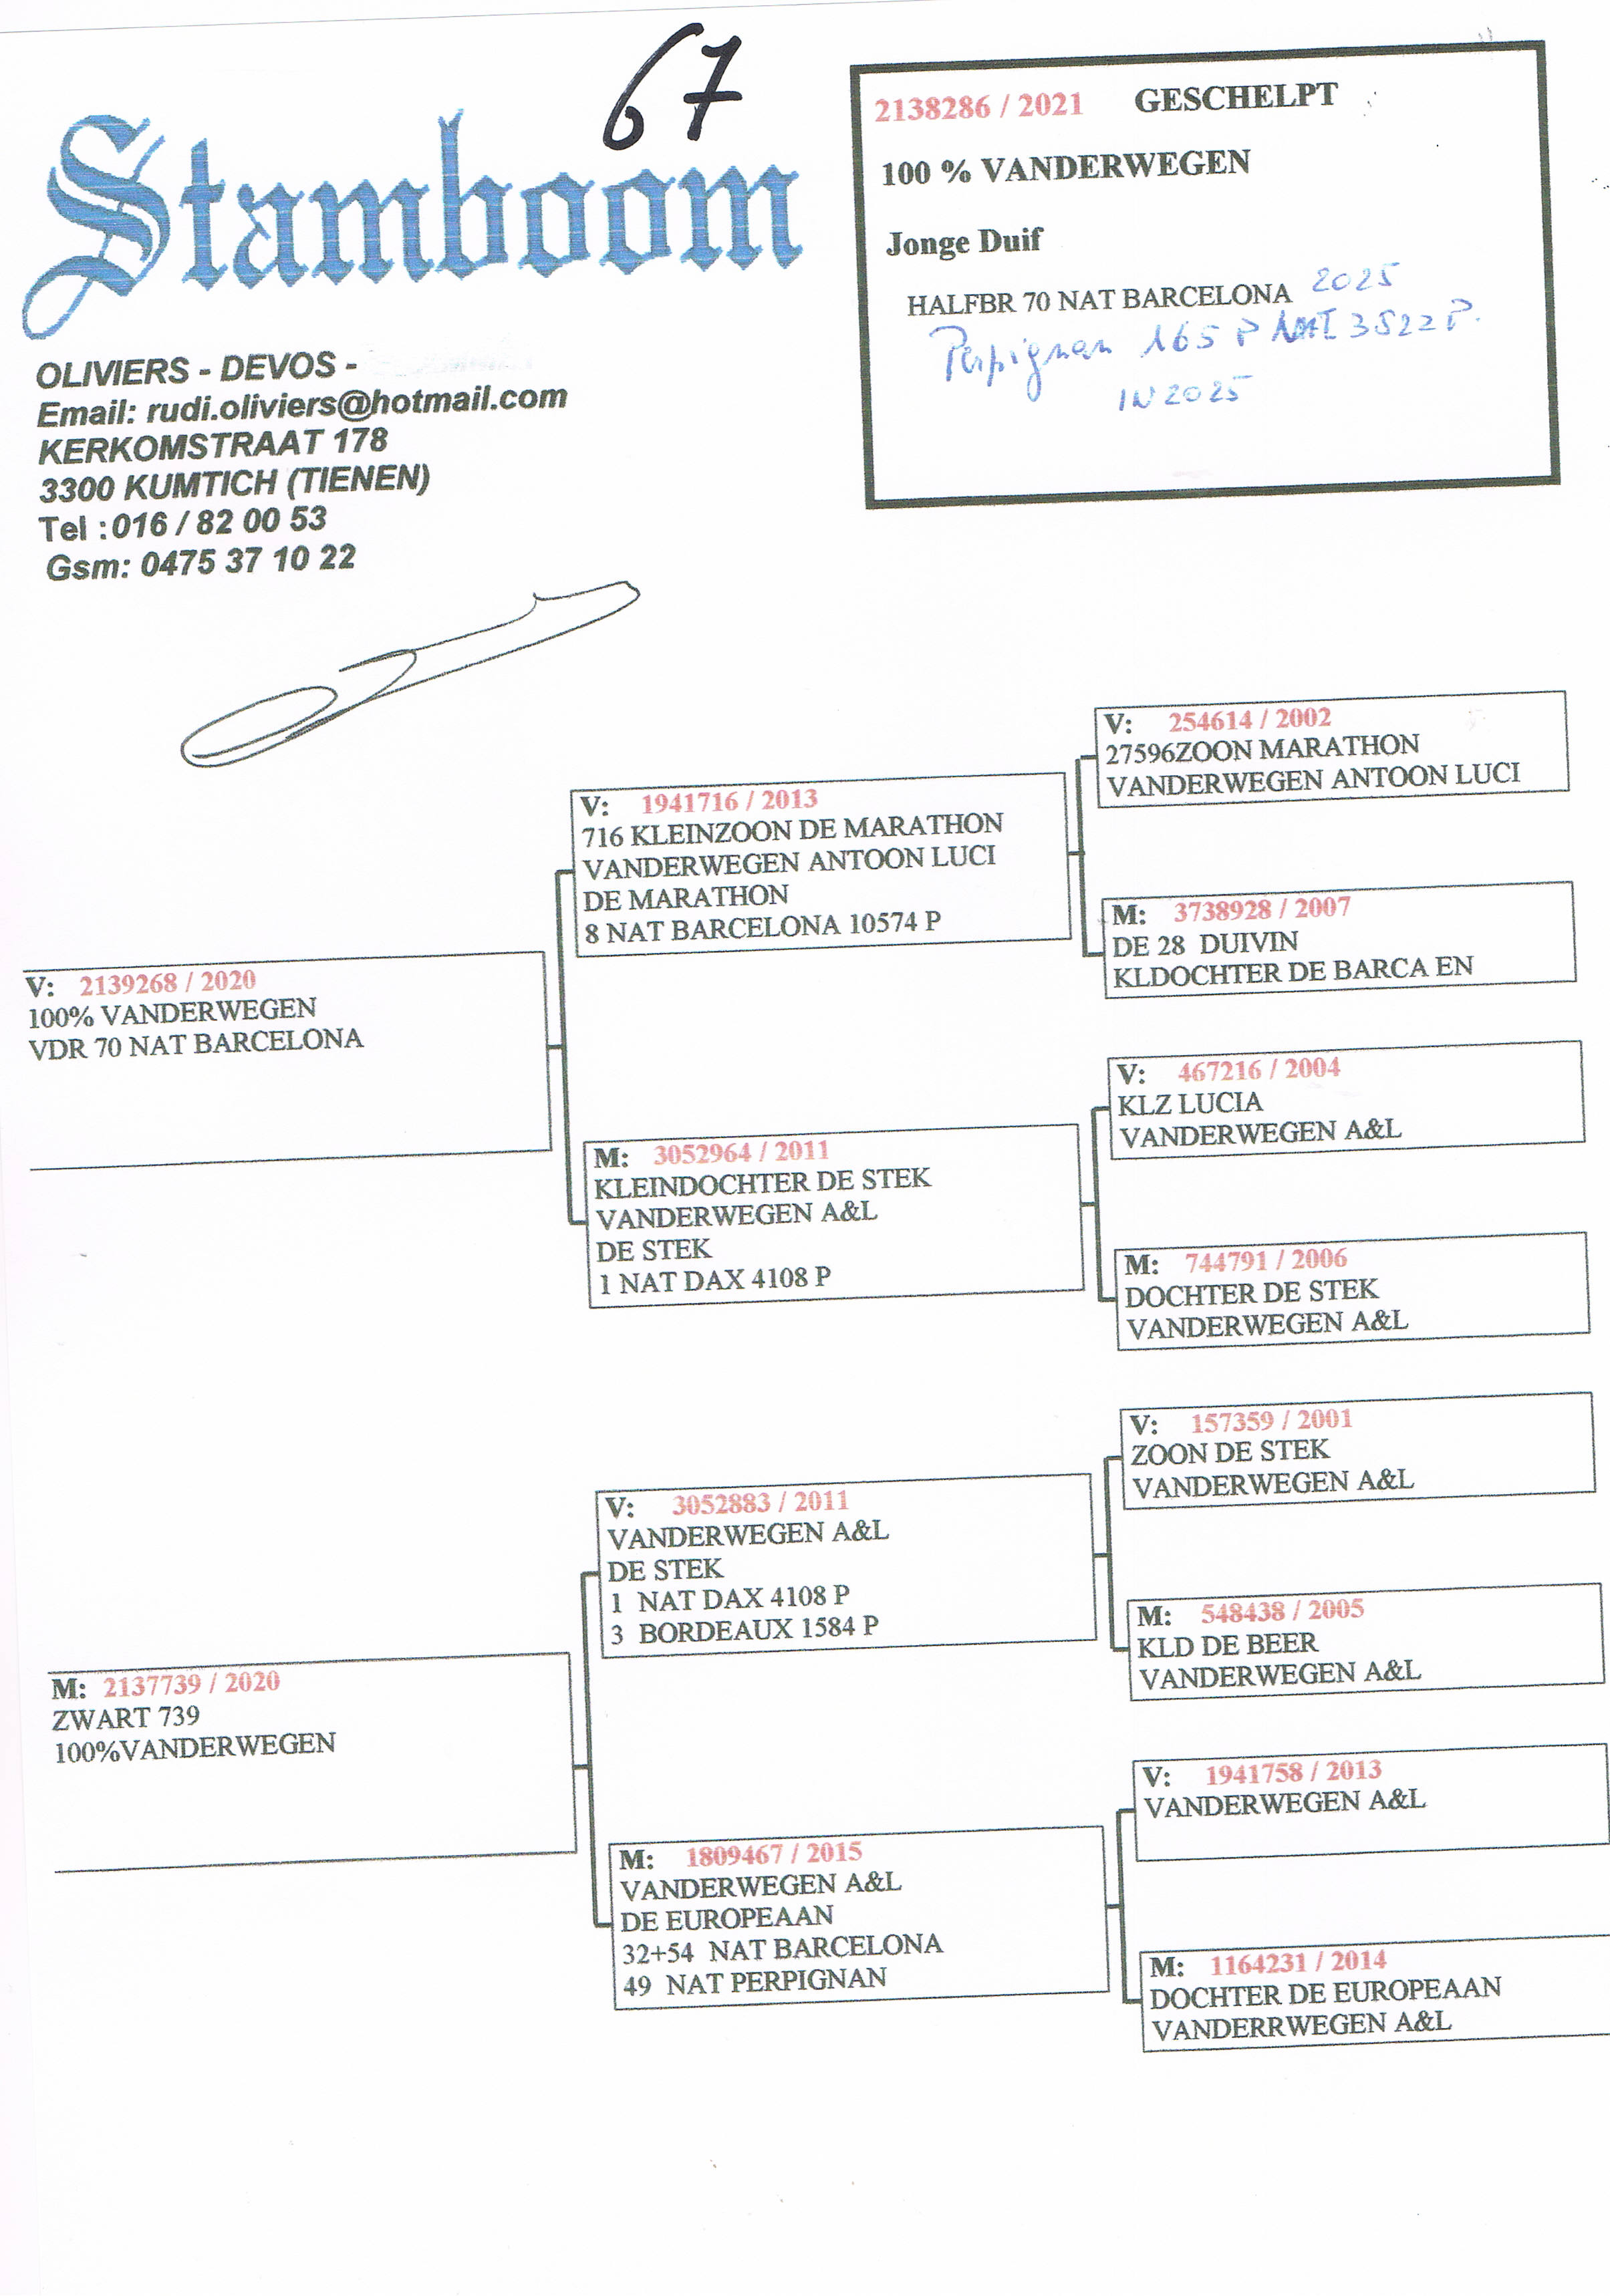 67
Stamboom
OLIVIERS - DEVOS -
Email: rudi.oliviers@hotmail.com
KERKOMSTRAAT 178
3300 KUMTICH (TIENEN)
Tel :016 / 82 00 53
Gsm: 0475 37 10 22
2138286 / 2021 GESCHELPT
100 % VANDERWEGEN
Jonge Duif
HALFBR 70 NAT BARCELONA 2025
Perpignan 165 P NAT 3522 P.
IN 2025
V: 2139268 / 2020
100% VANDERWEGEN
VDR 70 NAT BARCELONA
V: 1941716 / 2013
716 KLEINZOON DE MARATHON
VANDERWEGEN ANTOON LUCI
DE MARATHON
8 NAT BARCELONA 10574 P
M: 3052964 / 2011
KLEINDOCHTER DE STEK
VANDERWEGEN A&L
DE STEK
1 NAT DAX 4108 P
V: 254614 / 2002
27596ZOON MARATHON
VANDERWEGEN ANTOON LUCI
M: 3738928 / 2007
DE 28 DUIVIN
KLDOCHTER DE BARCA EN
V: 467216 / 2004
KLZ LUCIA
VANDERWEGEN A&L
M: 744791 / 2006
DOCHTER DE STEK
VANDERWEGEN A&L
M: 2137739 / 2020
ZWART 739
100%VANDERWEGEN
V: 3052883 / 2011
VANDERWEGEN A&L
DE STEK
1 NAT DAX 4108 P
3 BORDEAUX 1584 P
M: 1809467 / 2015
VANDERWEGEN A&L
DE EUROPEAAN
32+54 NAT BARCELONA
49 NAT PERPIGNAN
V: 157359 / 2001
ZOON DE STEK
VANDERWEGEN A&L
M: 548438 / 2005
KLD DE BEER
VANDERWEGEN A&L
V: 1941758 / 2013
VANDERWEGEN A&L
M: 1164231 / 2014
DOCHTER DE EUROPEAAN
VANDERRWEGEN A&L